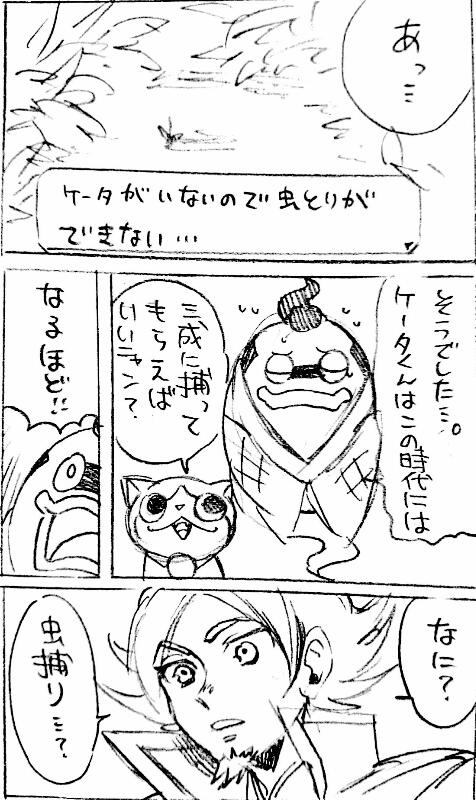 あっ…
ケータがいないので虫とりが
できない…
そうでした…。
ケータくんはこの時代には
三成に捕って
もらえば
いいニャン?
なるほど!!
なに?
虫捕り…?